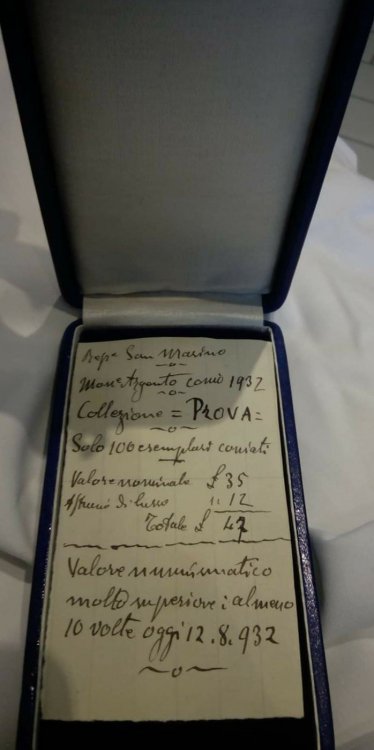 Rep.ª San Marino
Mon.e Argento conio 1932
Collezione = PROVA =
Solo 100 esemplari coniati
Valore nominale £ 35
Astuccio di lusso " 12
Totale £ 47
Valore numismatico
molto superiore: almeno
10 volte oggi 12.8.932